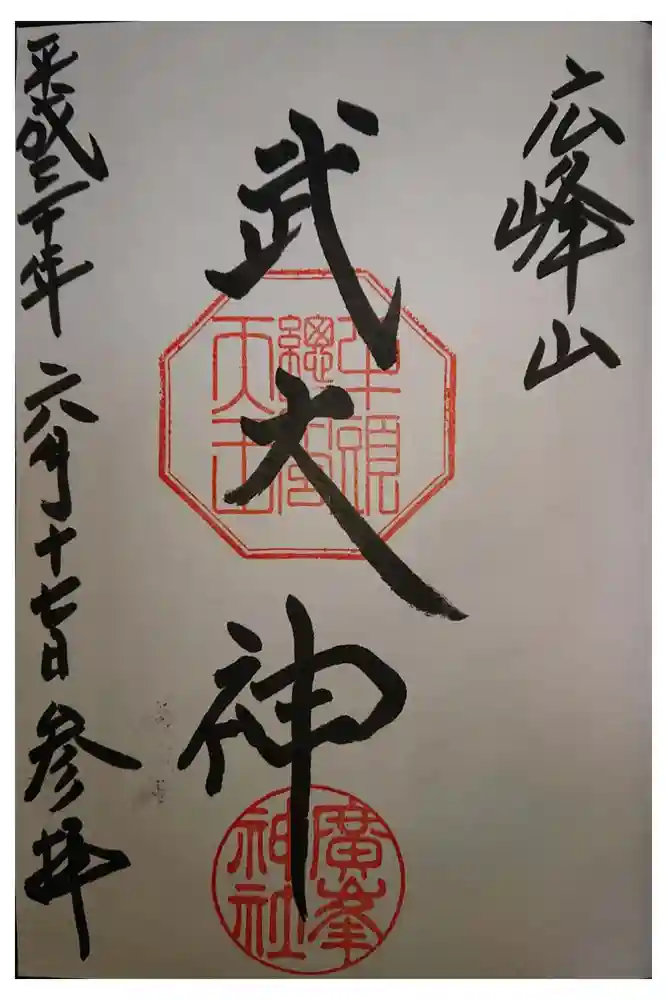 広峰山
武大神
牛頭
總宮
天王
廣峯
神社
平成三十年六月十七日参拝